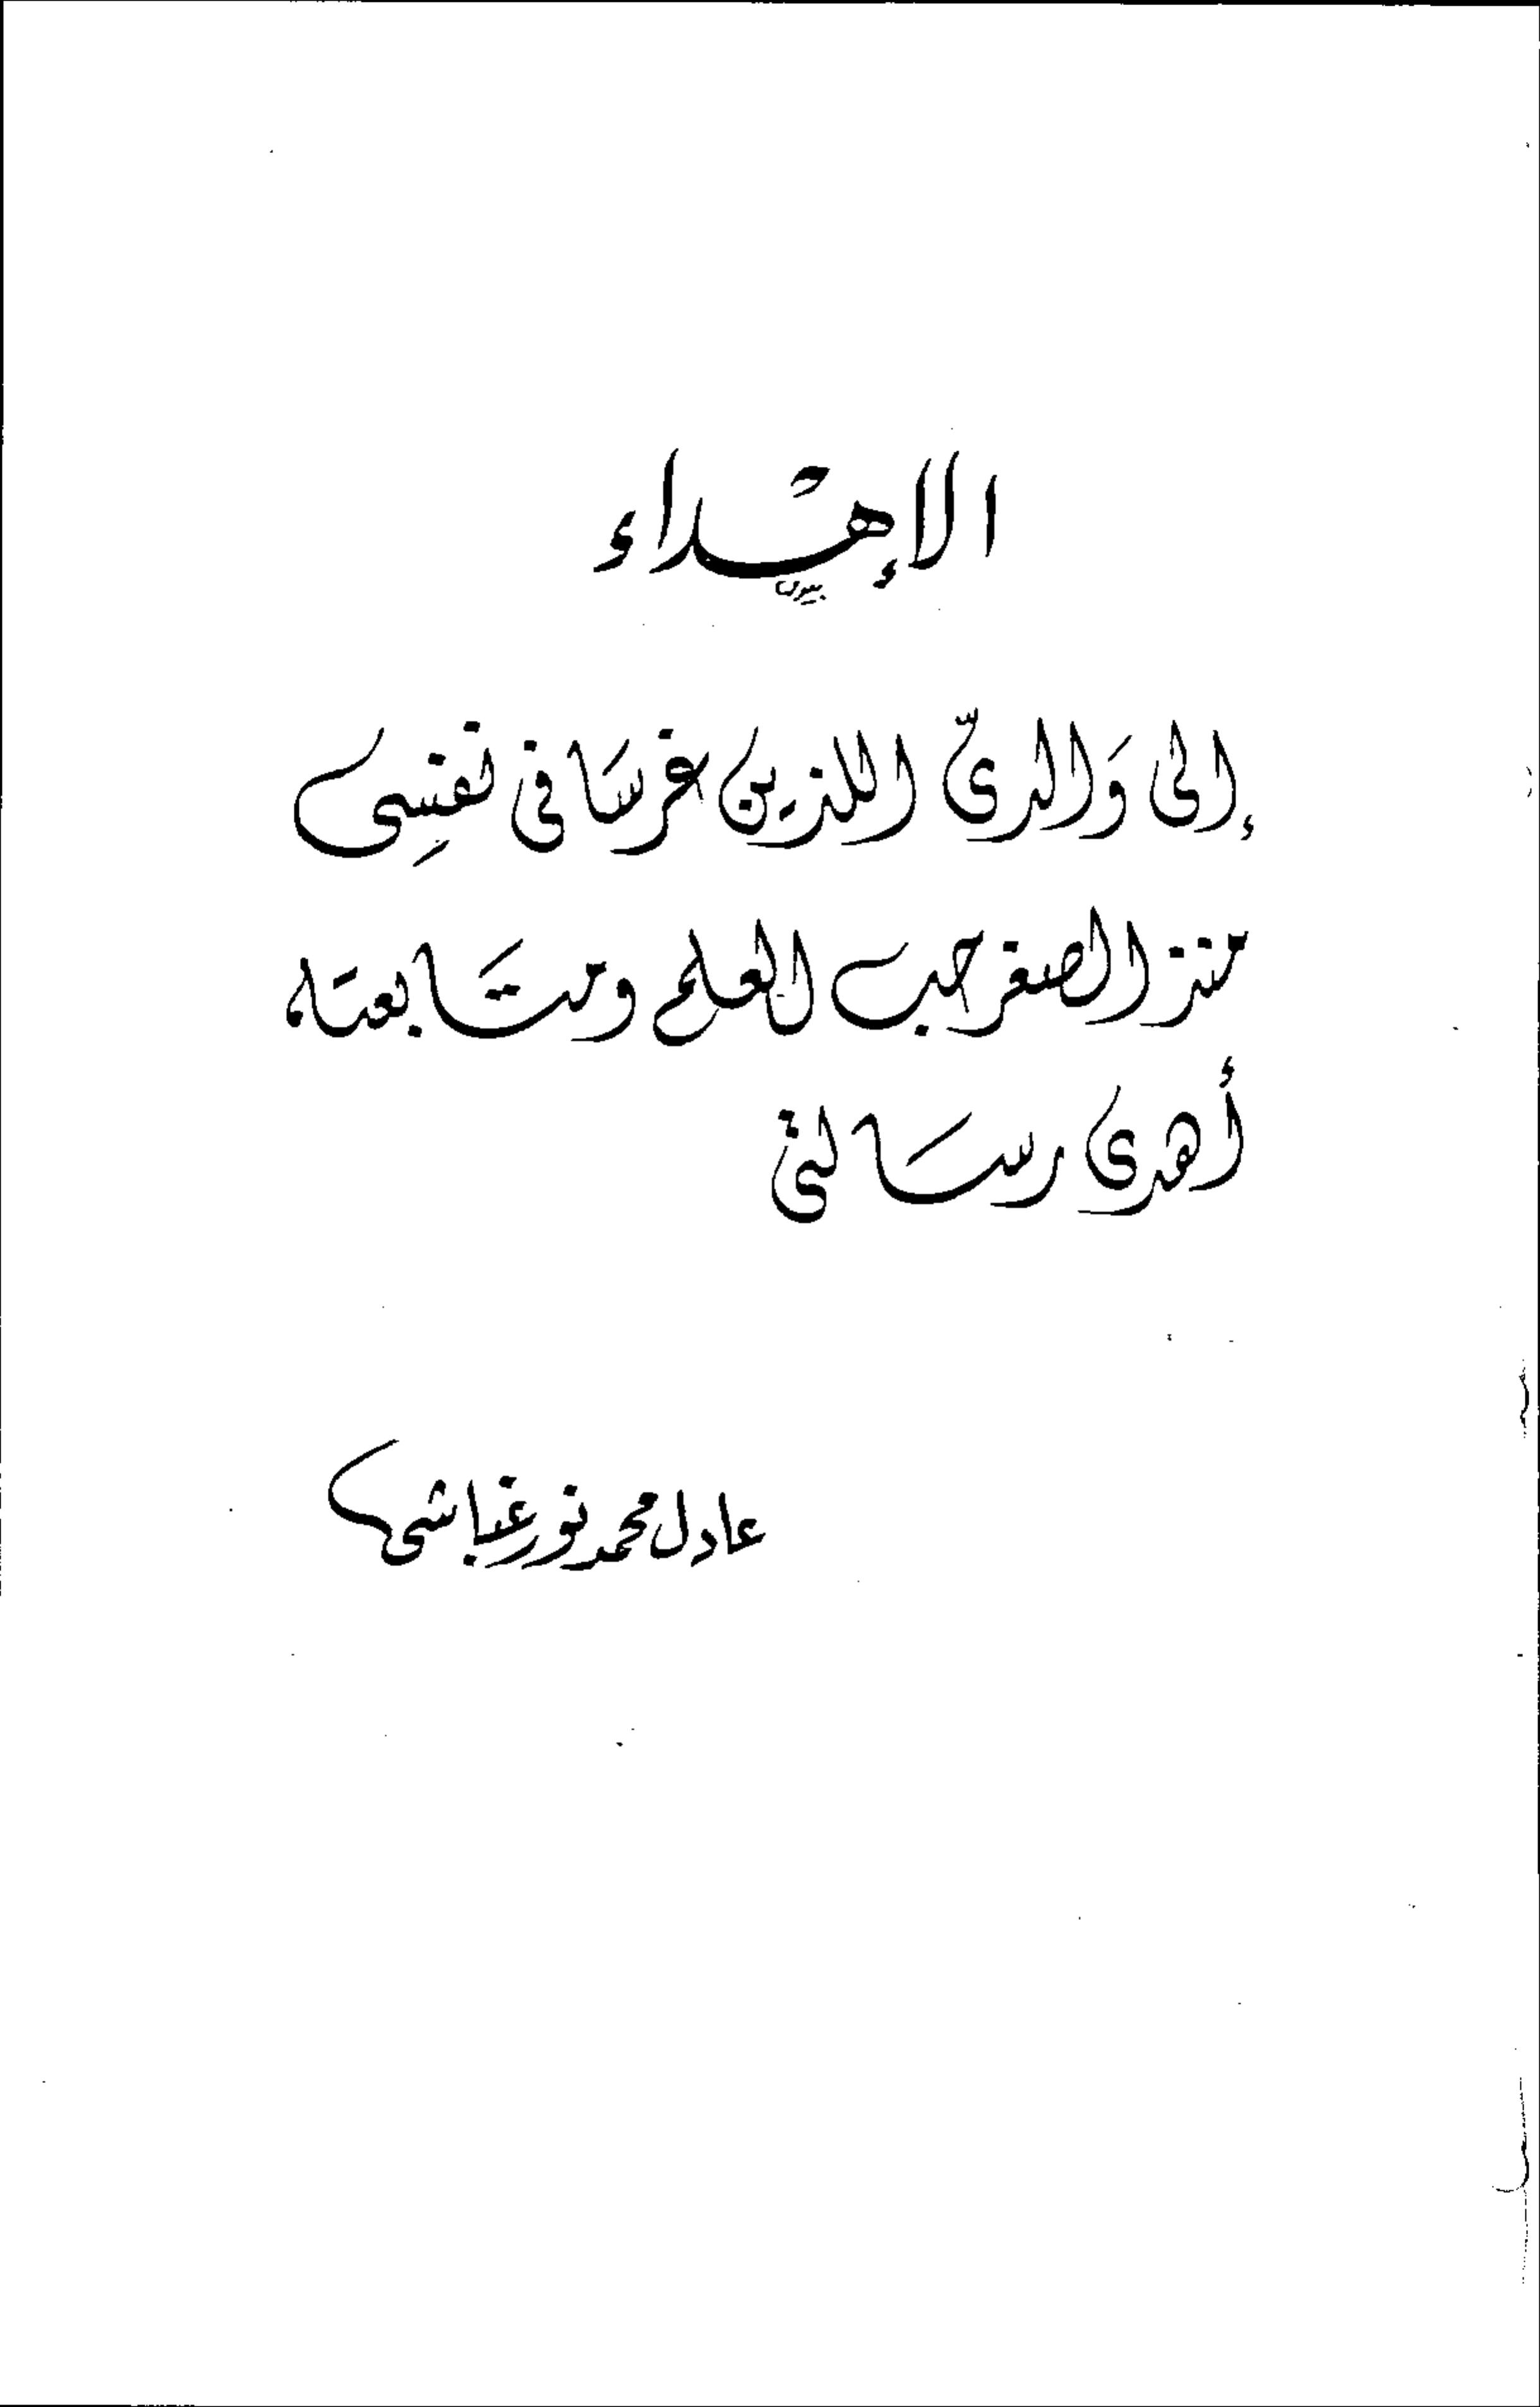 الإهداء
إلى وَالدىّ اللذين غرسَا فى نفسِى
منذ الصغر حب العلم ومتَابعتَه
أهدى رسَالتى
عادل محمد نور غباشى